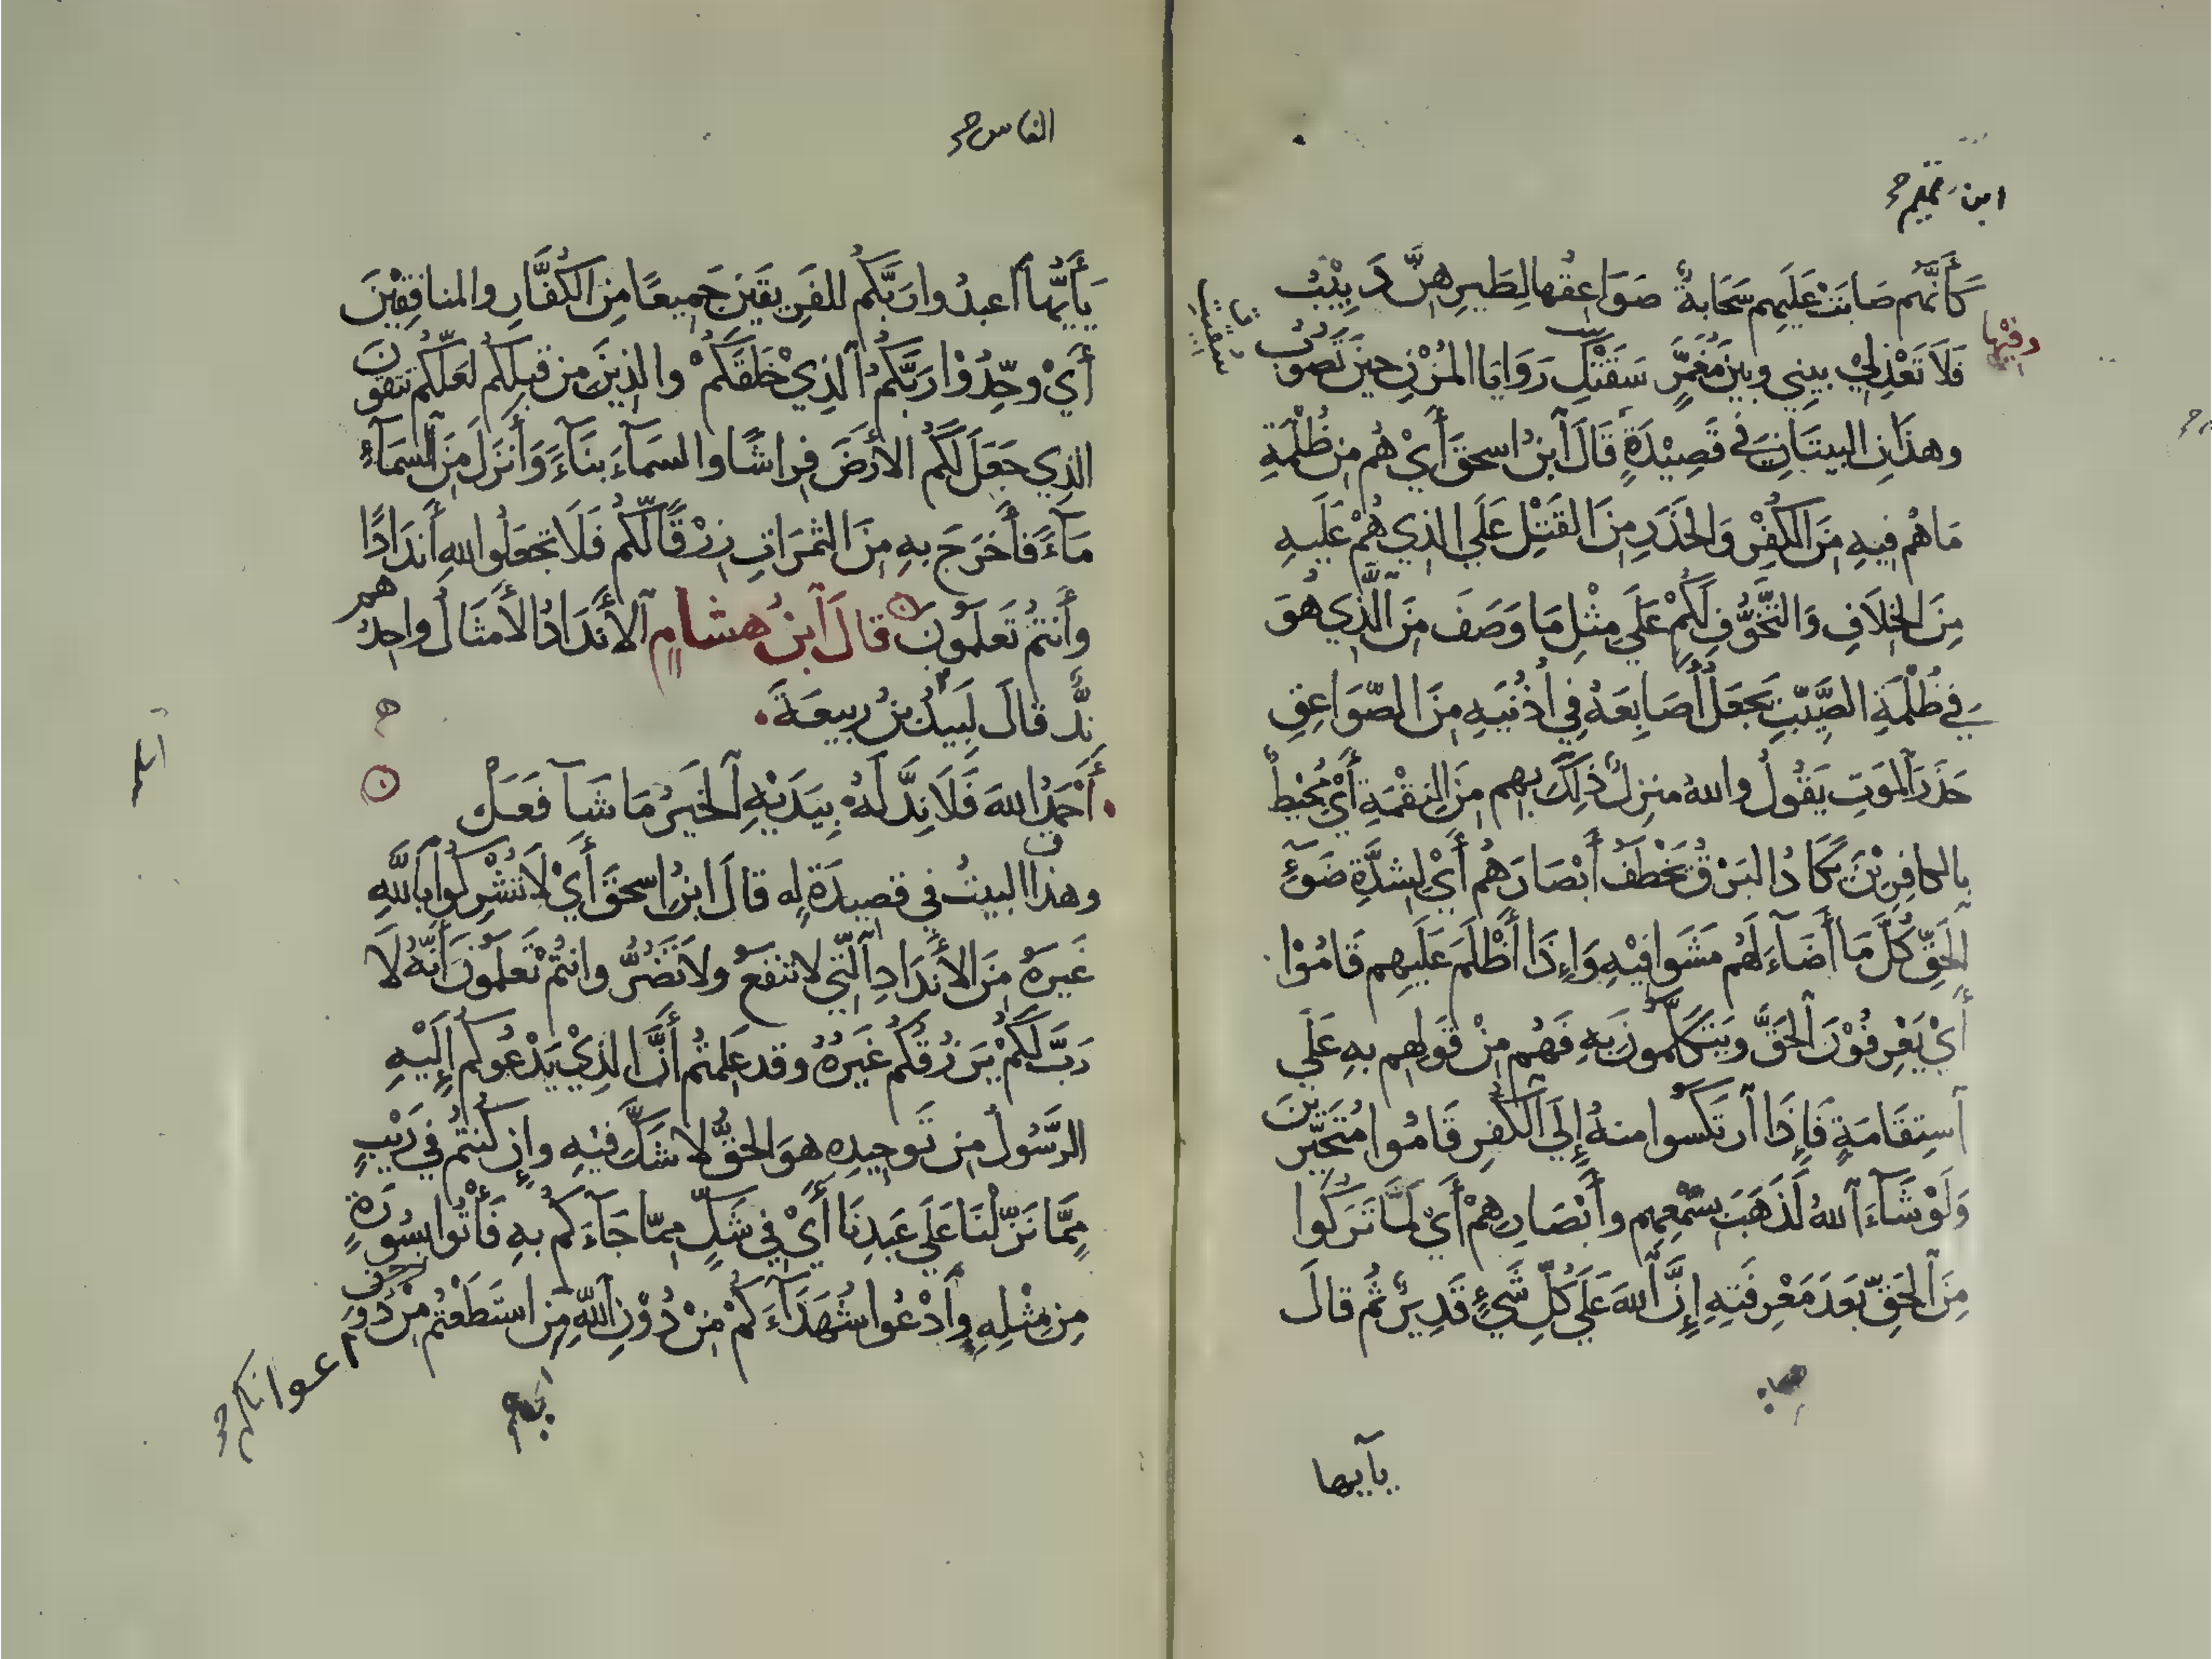 ابن تميم
كَأَنَّهُم صَابَتْ عَلَيهِم سَحَابةٌ صَوَاعِقُها لِطَيرِهِنَّ دَبِيْبُ
وفيها
فَلَا تَعْذِلِيْ بيني وبين مُغَمَّرٍ سَقَتْكِ رَوَايَا المُزْنِ حِينَ تَصُوْبُ
وهذَانِ البيتَانِ فى قَصِيْدَةٍ قَالَ ابنُ اسحقَ أَيْ هُم مِن ظُلْمَةِ
مَا هُم فيهِ مِنَ الكُفْرِ وَالحَذَرِ مِنَ القَتْلِ عَلَي الذِي هُمْ عَلَيهِ
مِنَ الخِلَافِ وَالتَّخَوُّفِ لَكُمْ عَلَي مِثْلِ مَا وَصَفَ مِنَ الَّذِي هُوَ
فِي ظُلْمَةِ الصَّيِّبِ يَجعَلُ أَصَابِعَهُ فِي أُذْنَيهِ مِنَ الصَّوَاعِقِ
حَذَرَ المَوتِ يَقُولُ واللهُ منزِلٌ ذلِكَ بهِم مِنَ النِقْمَةِ أَيْ مُحِيْطٌ
بالكافِرِيْنَ يَكَادُ البَرْقُ يَخْطَفُ أَبْصَارَهُم أَيْ لِشِدَّةِ ضَوْءِ
الحَقِّ كُلَّمَا أَضَاءَ لَهُم مَشَوا فيْهِ وَإِذَا أَظْلَمَ عَلَيهِم قَامُوْا
أَيْ يَعْرِفُوْنَ الحَقَّ ويَتَكَلَّمُونَ بِهِ فَهُم مِنْ قَولِهِم بهِ عَلَي
اسْتِقَامَةٍ فَإِذَا ارتَكَسُوا منهُ إِلَي الكُفْرِ قَامُوا مُتَحَيِّرِيْنَ
وَلَوْ شَاءَ اللهُ لَذَهَبَ بِسَمْعِهِم وأَبْصَارِهِمْ أَيْ لِمَا تَرَكُوا
مِنَ الحَقِّ بَعدَ مَعْرِفَتِهِ إِنَّ اللهَ عَلَي كُلِّ شَيْءٍ قَدِيرٌ ثُم قالَ
يآيها
الناس
يَأَيُّهَا اعبدُوا رَبَّكُم للفَرِيقَينِ جَمِيعًا مِنَ الكُفَّارِ والمنافِقِيْنَ
أَيْ وحِّدُوْا رَبَّكُمُ الذِيْ خَلَقَكُمْ والذِينَ مِن قَبلِكُم لَعَلَّكُم تتقونَ
الذِي جَعَلَ لَكُم الأَرْضَ فِراشًا والسمَآءَ بنَآءً وَأَنزَلَ مِنَ السمَآءِ
مَآءً فأَخرَجَ بهِ مِنَ الثمَرَاتِ رِزْقًا لَّكُم فَلَا تجعَلُوا للهِ أَندَادًا
وأَنتُم تَعلَمُونَ قالَ ابنُ هشامٍ الأَندَادُ الأَمثَالُ واحِدُهم
نِدٌّ قالَ لَبِيدُ بنُ ربيعَةَ
أَحْمَدُ اللهَ فَلَا نِدَّ لَهُ بِيَدَيْهِ الخَيرُ مَا شَآ فعَلْ
وهذا البيتُ في قصيدَةٍ له قالَ ابنُ اسحقَ أَيْ لَا تُشْرِكُوا باللَّهِ
غَيرَهُ مِنَ الأَندَادِ الَّتِي لا تنفَعُ ولَا تَضُرُّ وانتُمْ تَعلَمُونَ أَنَّهُ لَا
رَبَّ لَكُمْ يَرْزُقُكُم غَيرُهُ وقد عَلِمتُم أَنَّ الذِيْ يَدْعُوكُم إِلَيْهِ
الرَّسُولُ مِن تَوحِيدِهِ هوَ الحَقُّ لا شَكَّ فيْهِ وإِن كُنتُم فِي رَيْبٍ
مِمَّا نَزَّلْنَا عَلَي عَبدِنَا أَيْ فِي شَكٍّ مِمّا جَآءَكُم بهِ فَأْتُوا بسُورَةٍ
مِن مِثْلِهِ وادْعُوا شُهَدَآءَكُمْ مِنْ دُوْنِ اللَّهِ مَن استَطَعْتُم مِنْ دُونِ
اعوانكم